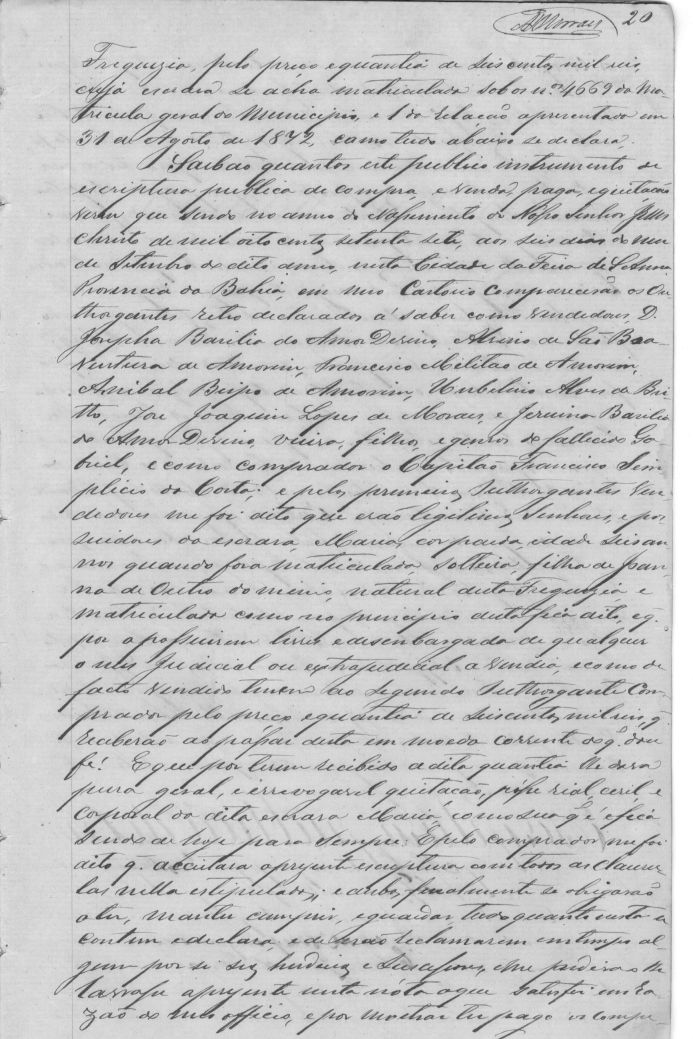 20
Freguezia, pelo preço e quantia de seiscentos mil reis,
cuja escrava se acha matriculada sob os nos 4669 da Ma-
tricula geral do Municipio, e 1 da relação apresentada em
31 de Agosto de 1872, como tudo abaixo se declara,
Saibão quantos este publico instrumento de
escriptura publica de compra, e venda, paga, e quitação
virem que sendo no anno do Nascimento de Nosso Senhor Jesus
Christo de mil oito centos setenta sete, aos seis dias do mez
de Setembro do dito anno, nesta Cidade da Feira de S. Anna
Provincia da Bahia, em meo Cartorio comparecerão os Ou-
thorgantes retro declarados a saber como vendedores, D.
Josepha Barilia do Amor Devino, de São Boa-
ventura de Amorim, Francisco Militão de Amorim,
Anibal Bispo de Amorim, Umbelino Alves de Bri-
tto, José Joaquim Lopes de Moraes, e Jeruina Barilia
do Amor Devino, viuva, filhos, e genros do fallecido Ga-
briel, e como comprador o Capitão Francisco Sim-
plicio da Costa; e pelos primeiros Outhorgantes ven-
dedores me foi dito que erão legitimos Senhores, e pos-
suidores da escrava, Maria, cor parda, idade seis an-
nos quando fora matriculada, solteira, filha de Joan-
na de outro dominio, natural desta Freguezia e
matriculada como no principio desta fica dito, e q.
por a possuirem livre e desembargada de qualquer
onus Judicial ou extrajudicial a vendia, e como de
facto vendido tinhão ao segundo Outhorgante Com-
prador pelo preço e quantia de seiscentos mil reis, q.
receberão ao passar desta em moeda corrente do q. dou
fé! E que por terem recebido a dita quantia lhe dava
pura geral, e irrevogavel quitação, posse rial, cevil e
corporal da dita escrava Maria, como sua q. é e fica
sendo de hoje para sempre: E pelo comprador me foi
dito q. acceitava a presente escriptura com todas as clausu-
las nella estipuladas; e ambos finalmente se obrigarão
a ter, manter cumprir, e guardar tudo quanto nesta se
contem e declara, e de não reclamarem em tempo al-
gum por si seus herdeiros e Successores, e me pedirão lhe
lavrasse a presente nesta nóta a que satisfiz em ra-
zão do meo officio, e por mostrar ter pago os compe-